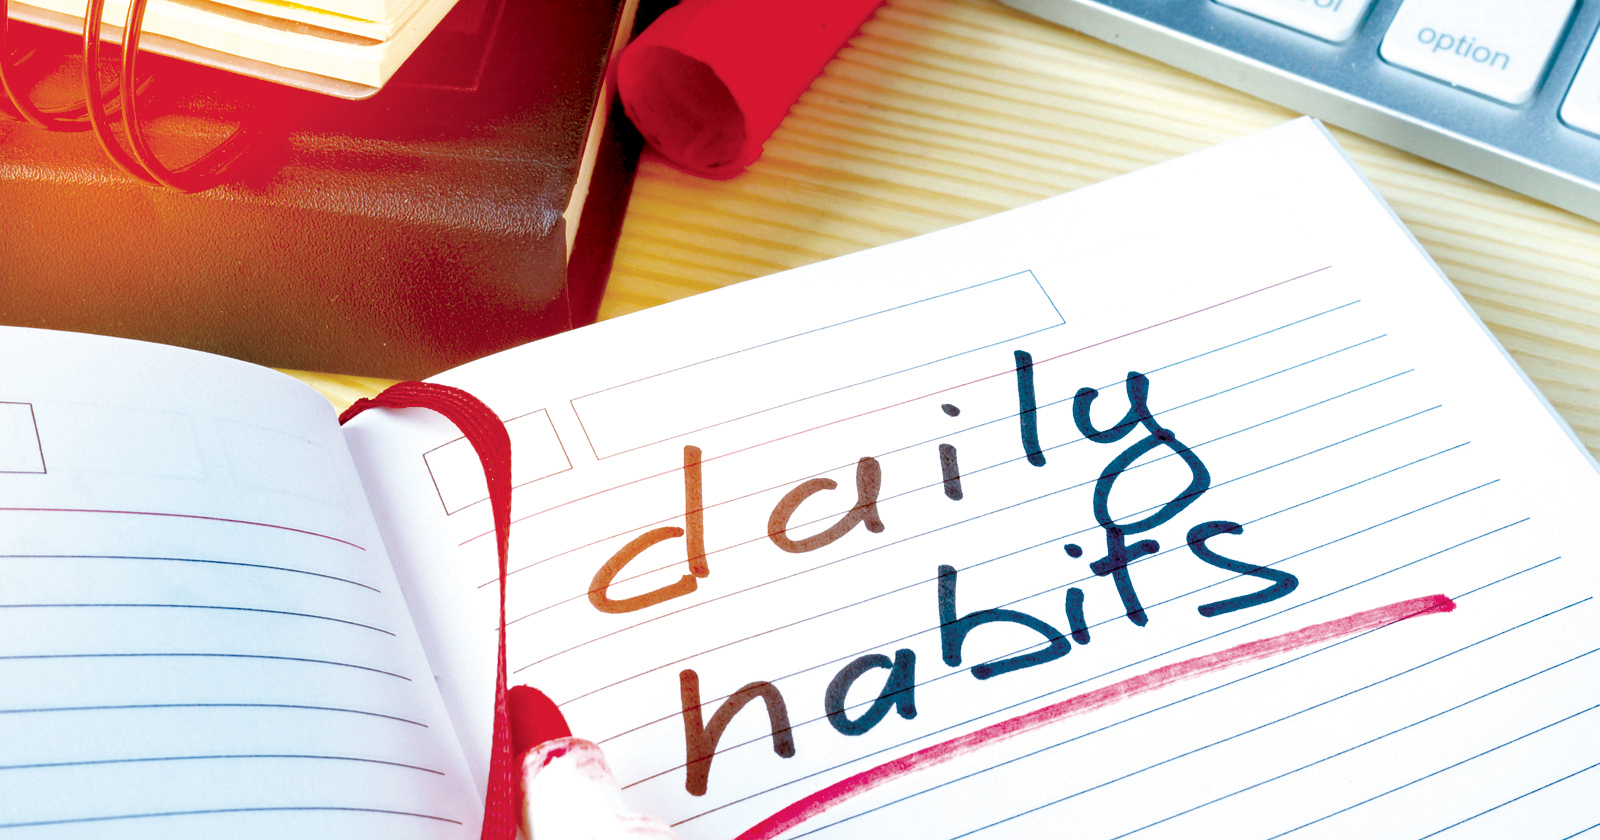 option
daily
habits